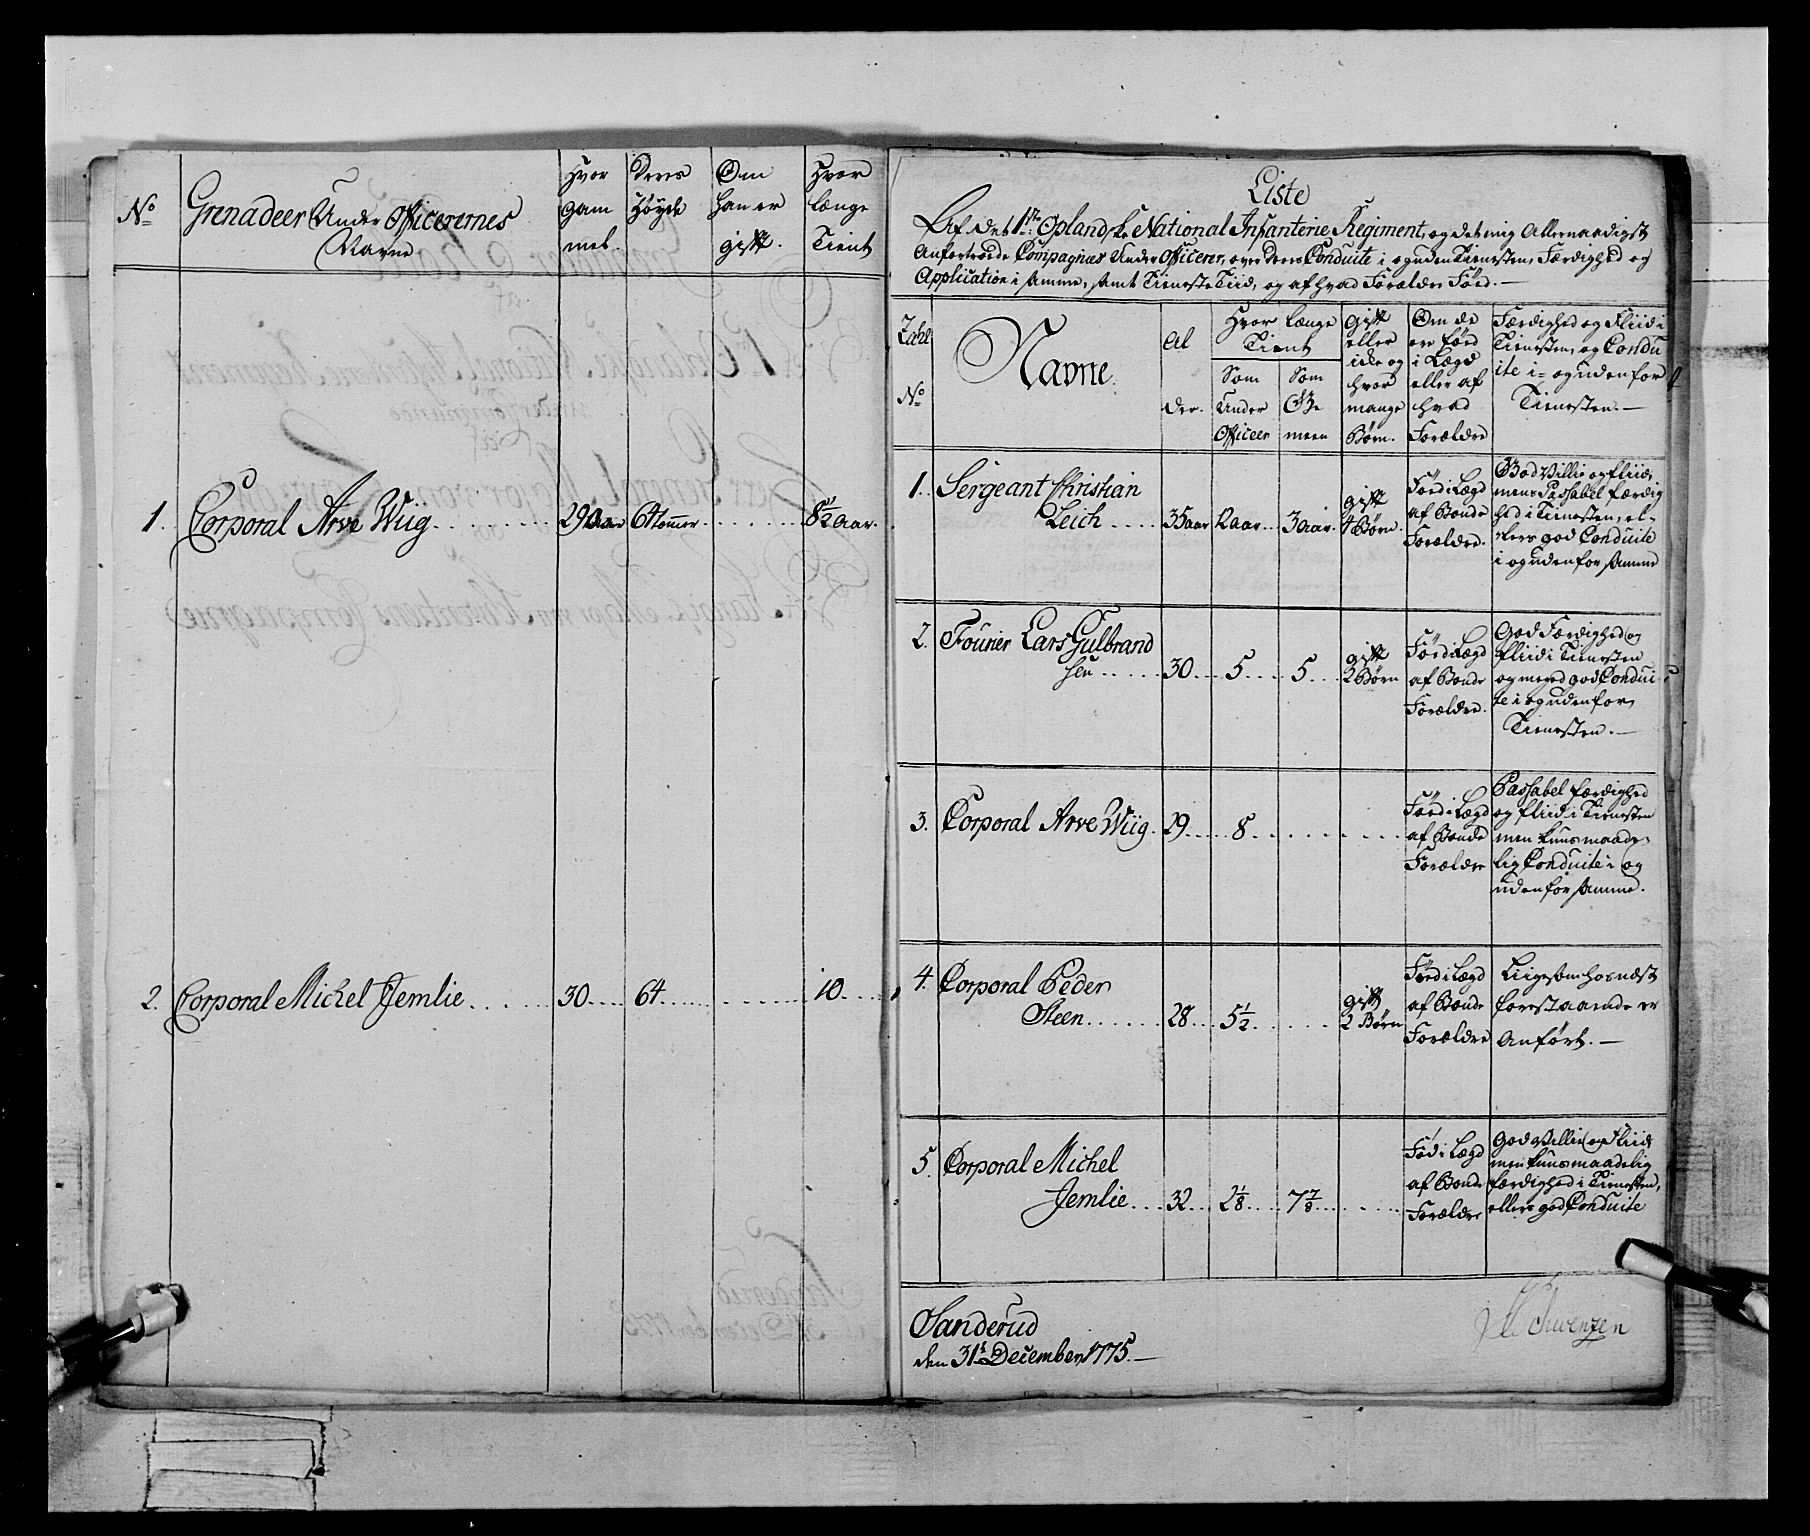 No
Grenadeer Under Officerernes
Navne
Hvor
gam
mel.
Deres
Høyde
Om
han er
gift.
Hvor
længe
Tient
1. Corporal Arve Wiig 29 Aar 64 tommer 8½ aar.
2. Corporal Michel Jemlie 30 64 10
Liste
Af det 1ste Oplandske National Infanterie Regiment, og det mig Allernaadigst
Anfortroede Compagnies Under Officerer, over deres Conduite i og uden Tienesten, Færdighed og
Application i samme, samt Tieneste Tiid, og af hvad Forældre Fød.
Zahl
No
Navne
Al
der.
Hvor længe
Tient
Som
Under
Officeer
Som
Ge
meen
Gift
eller
ikke og
hvor
mange
Børn.
Om de
er fød
i Lægd
eller af
hvad
Forældre
Færdighed og Fliid i
Tienesten, og Condu
ite i- og uden for
Tienesten.
1. Sergeant Christian
Leich 35 aar 12 aar 3 aar
gift
4 Børn
Fød i Lægd
af Bonde
Forældre.
God Villie og Fliid,
men Passabel færdig
hed i Tienesten, el-
lers god Conduite
i og uden for samme
2. Fourier Lars Gulbrand
sen 30 5 5
gift
2 Børn
Fød i Lægd
af Bonde
Forældre.
God Færdighed og
Fliid i Tienesten
og meged god Condui
te i og uden for
Tienesten.
3. Corporal Arve Wiig 29 8
Fød i Lægd
af Bonde
Forældre
Passabel færdighed
og fliid i Tienesten
men kuns maade-
lig Conduite i og
uden for samme.
4. Corporal Peder
Steen 28 5½
gift
2 Børn
Fød i Lægd
af Bonde
Forældre
Liigesom hos næst
forestaaende er
Anført.
5. Corporal Michel
Jemlie 32 2⅛ 7⅞
Fød i Lægd
af Bonde
Forældre
God Villie og Fliid
men kuns maadelig
færdighed i Tienesten,
ellers god Conduite
Sanderud
den 31te December 1775.